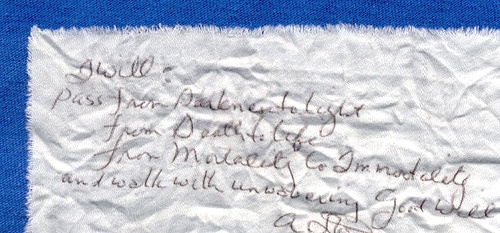 I will:
pass from Darkness to Light
From Death to Life
From Mortality to Immortality
and walk with unwavering Good Will